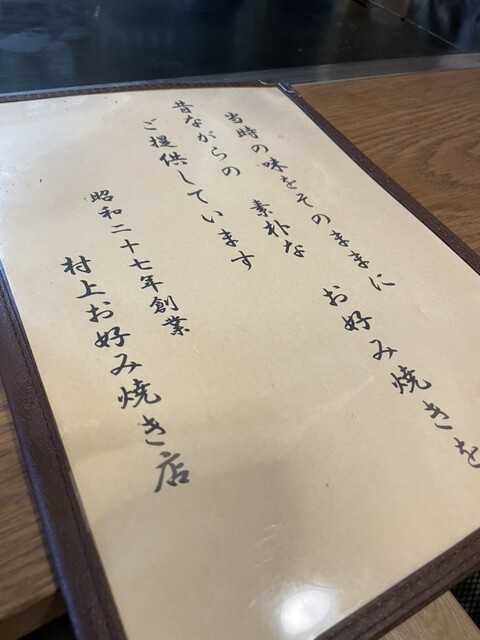 当時の味をそのままに
昔ながらの 素朴な お好み焼きを
ご提供しています
昭和二十七年創業
村上お好み焼き店